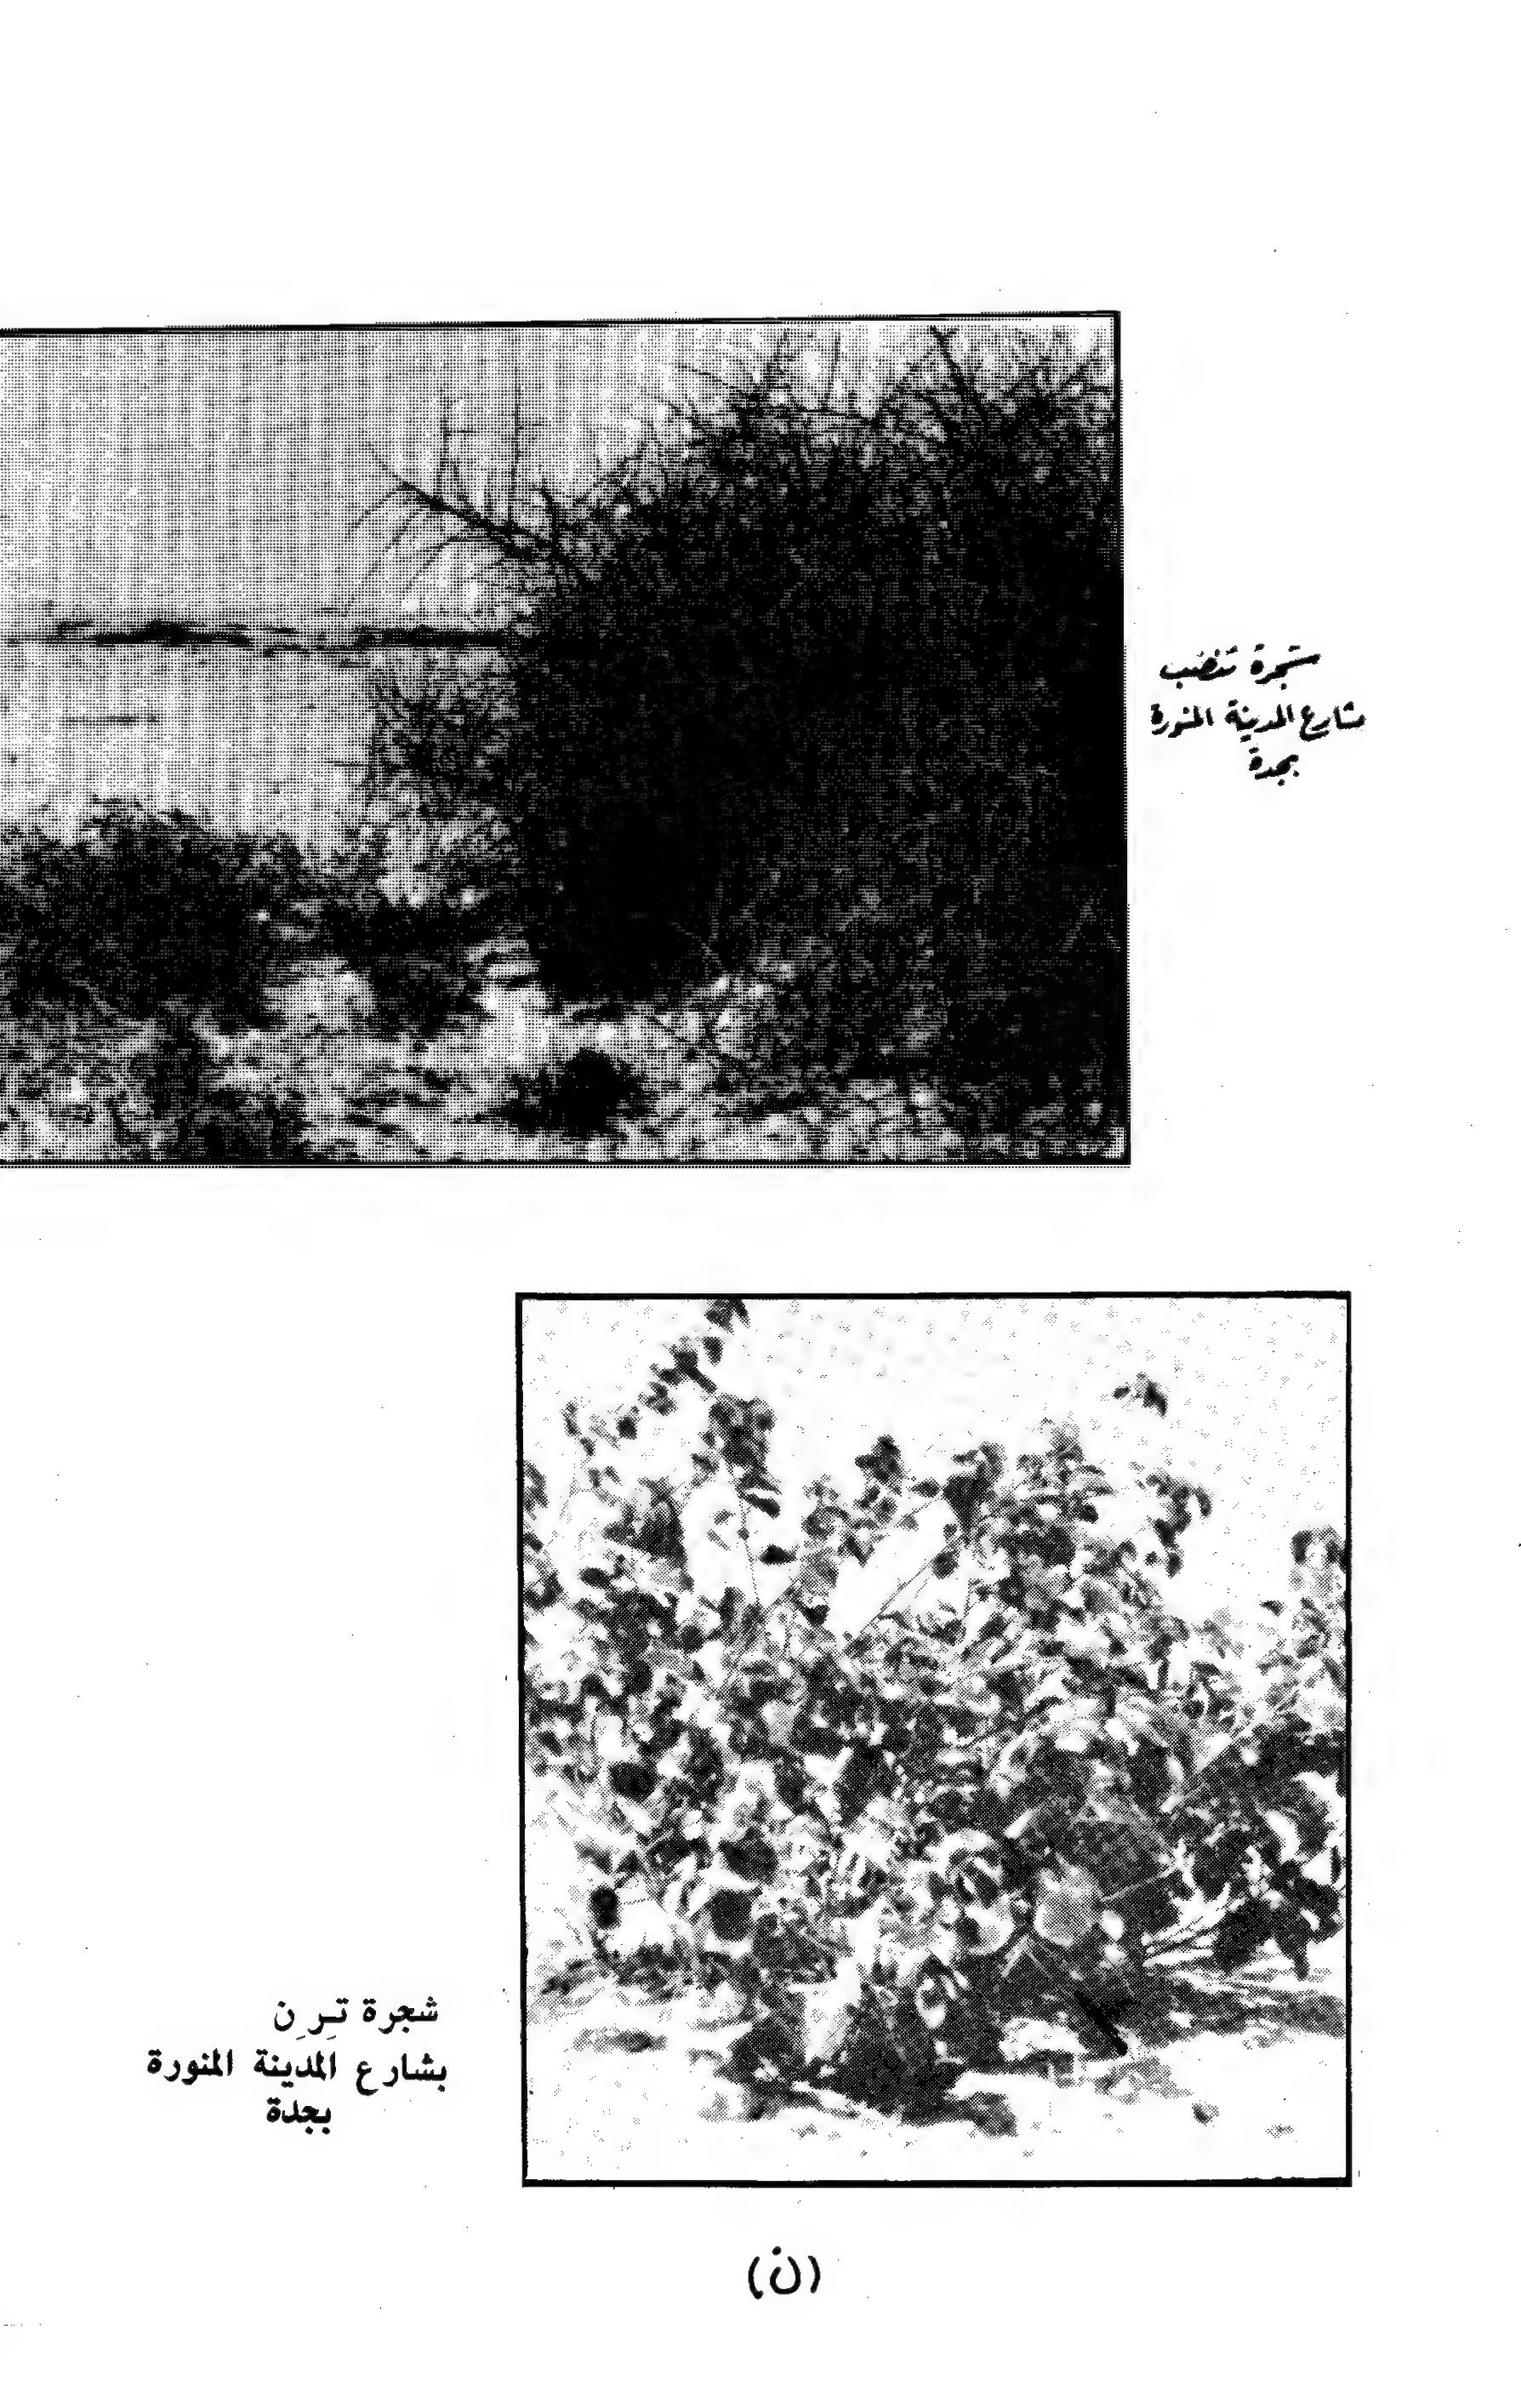 شجرة تنضب
بشارع المدينة المنورة
بجدة
شجرة تَرِن
بشارع المدينة المنورة
بجدة
(ن)